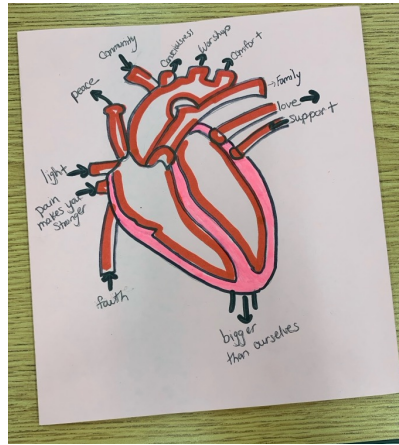 Community
Worship
Comfort
peace
Family
love
support
light
pain
makes you
stronger
faith
bigger
than ourselves